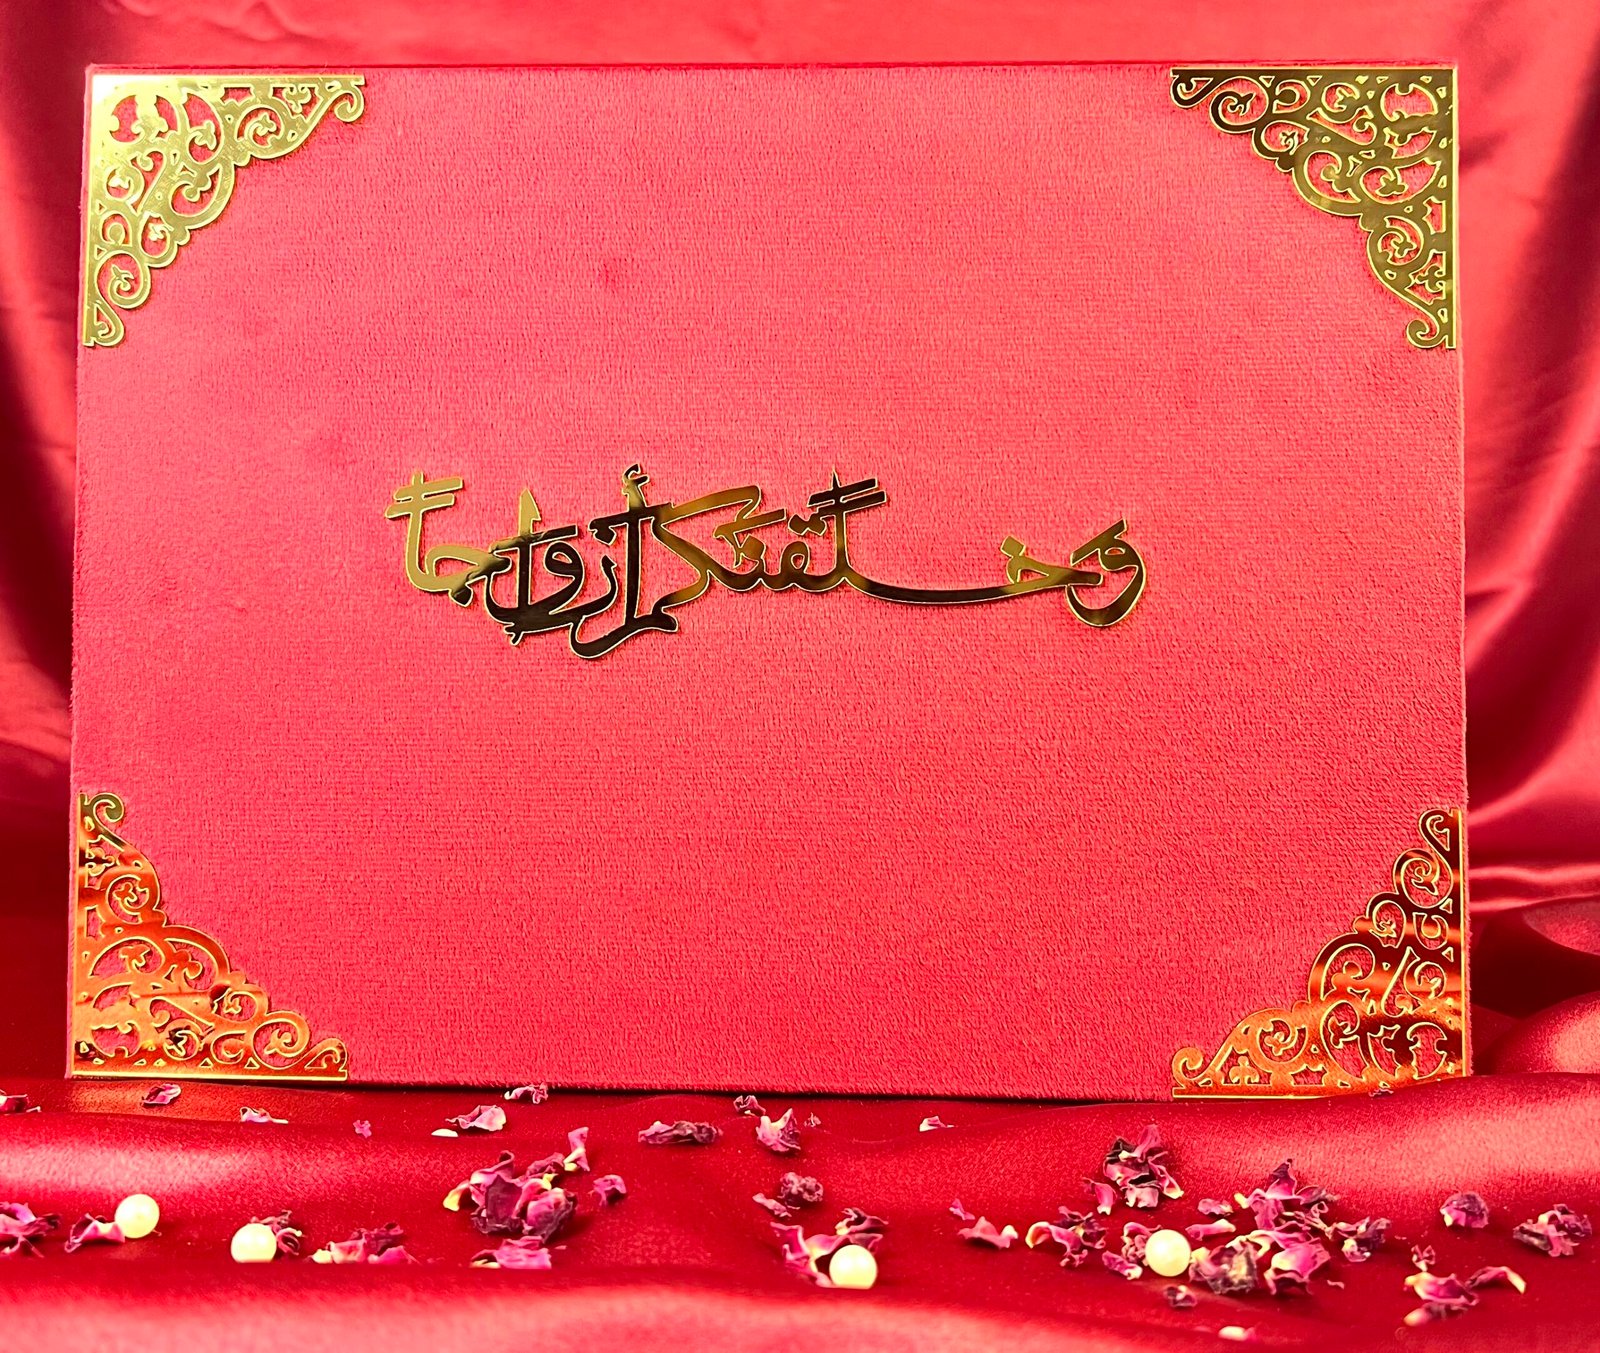 وخلقنكم أزواجاً